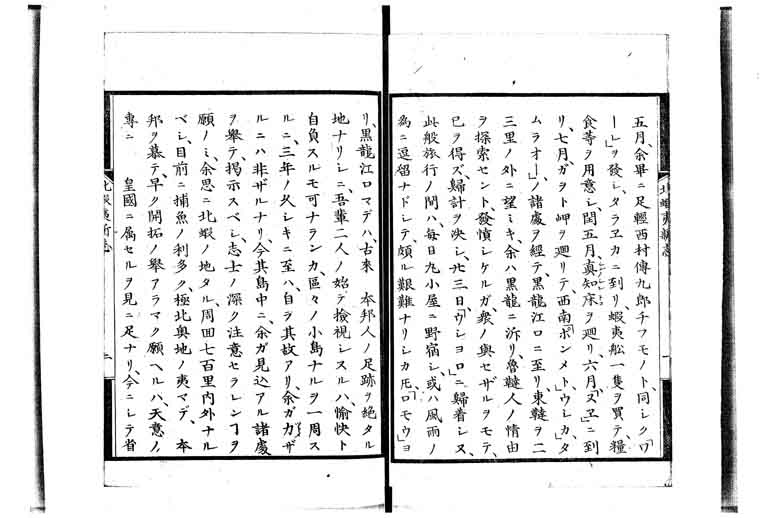 五月、余畢ニ足輕西村傳九郎チフモノト、同シク「ワ
ー」ヲ發シ、タラヱカニ到リ、蝦夷舩一隻ヲ買テ糧
食等ヲ用意シ、閏五月、眞知床ヲ廻リ、六月「ヌヱ」ニ到
リ、七月ガヲト岬ヲ廻リテ、西南「ボンメト」「ウレカ」「タ
ムラオー」ノ諸處ヲ經テ、黒龍江口ニ至リ、東韃ヲ二
三里ノ外ニ望ミキ、余ハ黒龍ニ泝リ、魯韃人ノ情由
ヲ探索セント、發憤シケルガ、衆ノ與セザルヲモテ、
已ヲ得ズ、歸計ヲ决シ、廿三日「ウショロ」ニ歸着シヌ、
此般旅行ノ間ハ、每日丸小屋ニ野宿シ、或ハ風雨ノ
爲ニ逗留ナドシテ、頗ル艱難ナリシカ𪜈、「ロモウ」ヨ
リ、黒龍江口マデハ、古來 本邦人ノ足跡ヲ絶タル
地ナリシニ、吾輩二人ノ始テ檢視シスルハ、愉快ト
自負スルモ可ナランカ、區々ノ小島ナルヲ一周ス
ルニ、三年ノ久シキニ至ハ、自ラ其故アリ、余ガカザ
ルニハ非ザルナリ、今其島中ニ、余ガ見込アル諸處
ヲ擧テ、揭示スベシ、志士ノ深ク注意セラレンヿヲ
願ノミ、余思ニ北蝦ノ地タル、周囲七百里内外ナル
ベシ、目前ニ捕魚ノ利多ク、極北奥地ノ夷マデ、 本
邦ヲ慕テ、早ク開拓ノ擧アラマク願ヘルハ、天意ノ
專ニ 皇國ニ属セルヲ見ニ足ナリ、今ニシテ省
北蝦夷新志